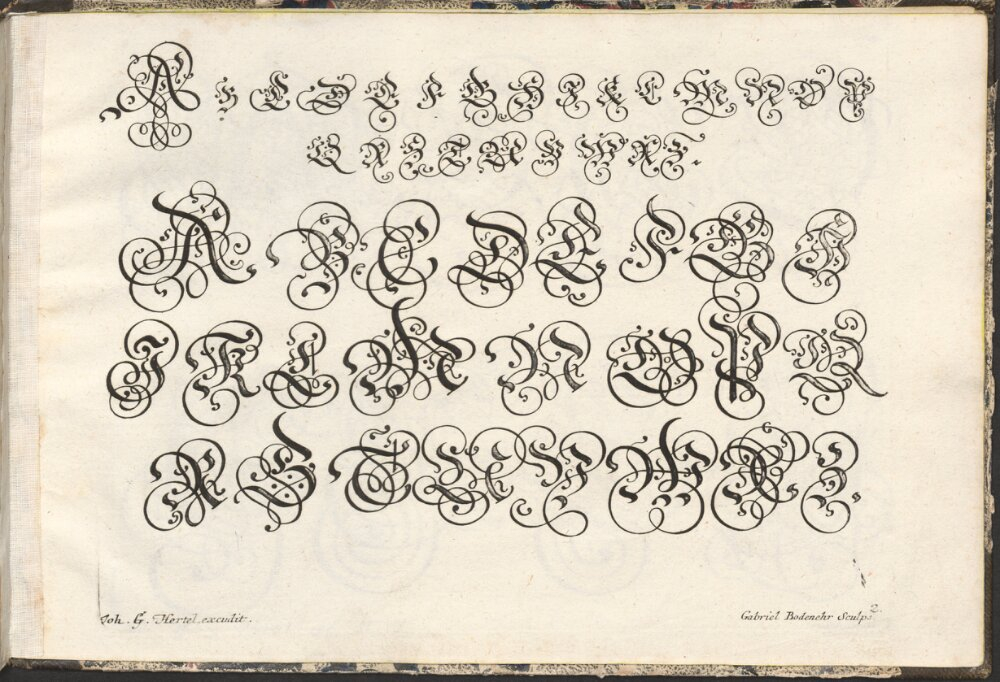 A B C D E F G H I K L M N O P
Q R S T U V W X Z.
A B C D E F G H
I K L M N O P Q
R S T U V W X Z.
Joh. G. Hertel excudit.
Gabriel Bodenehr Sculps. 2.